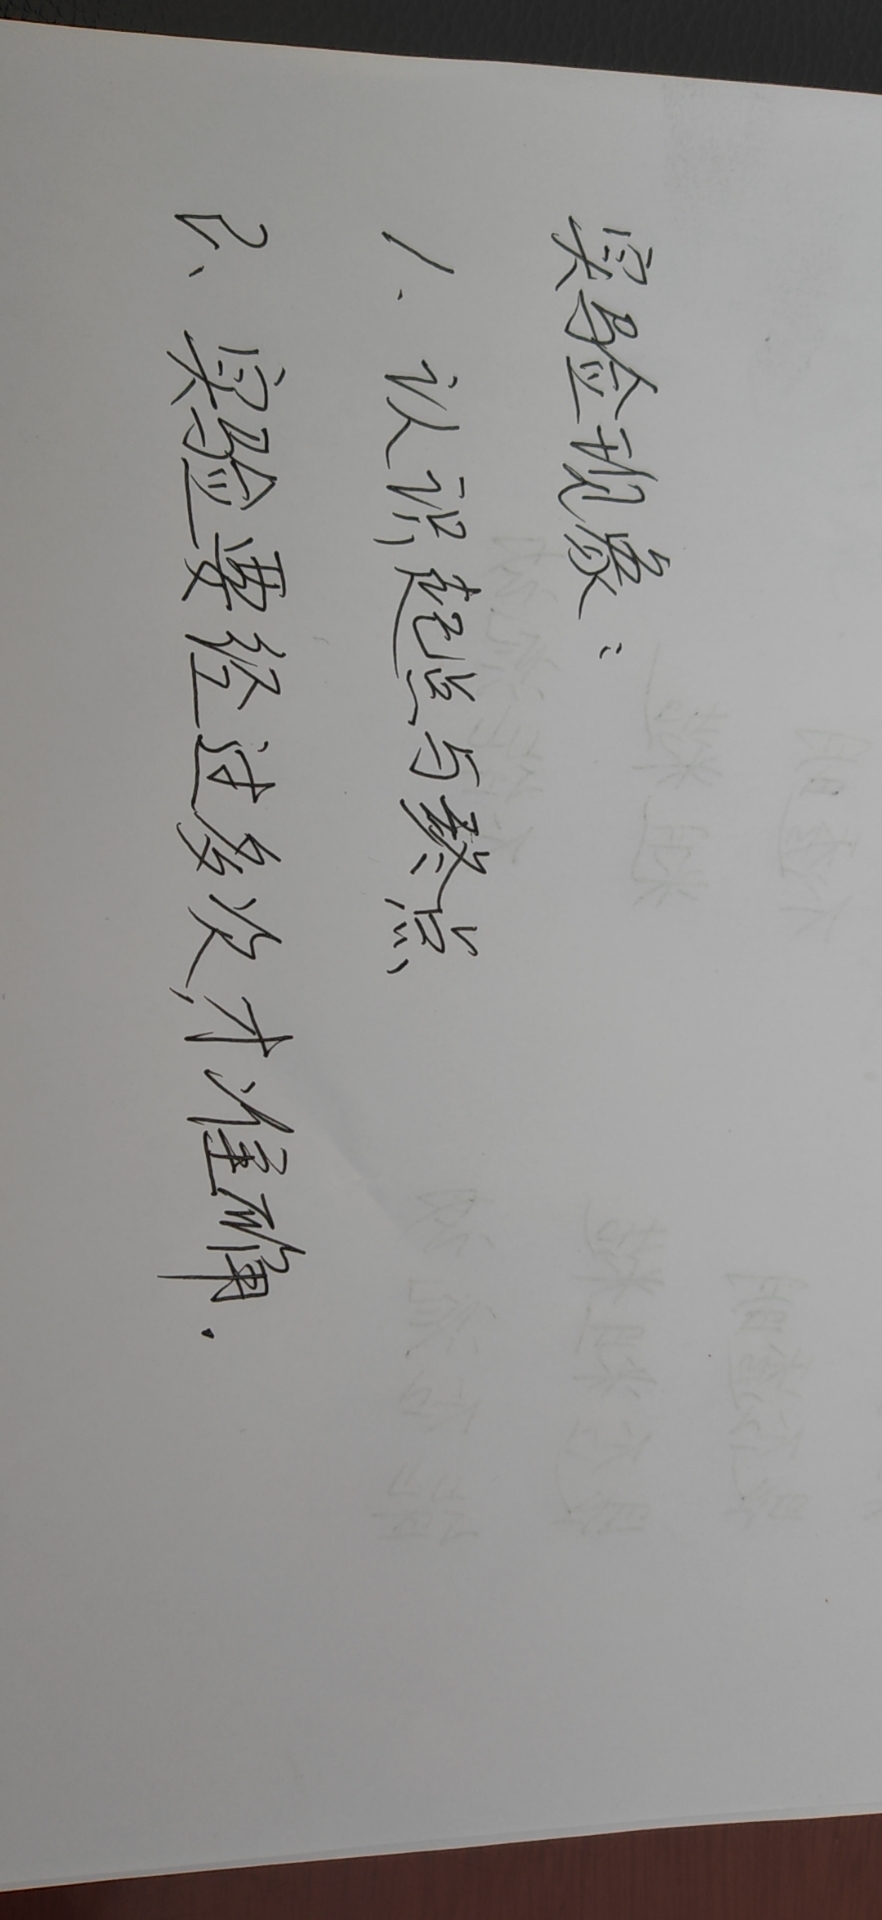 实验现象：
1、认识起点与终点
2、实验要经过多次,才准确.